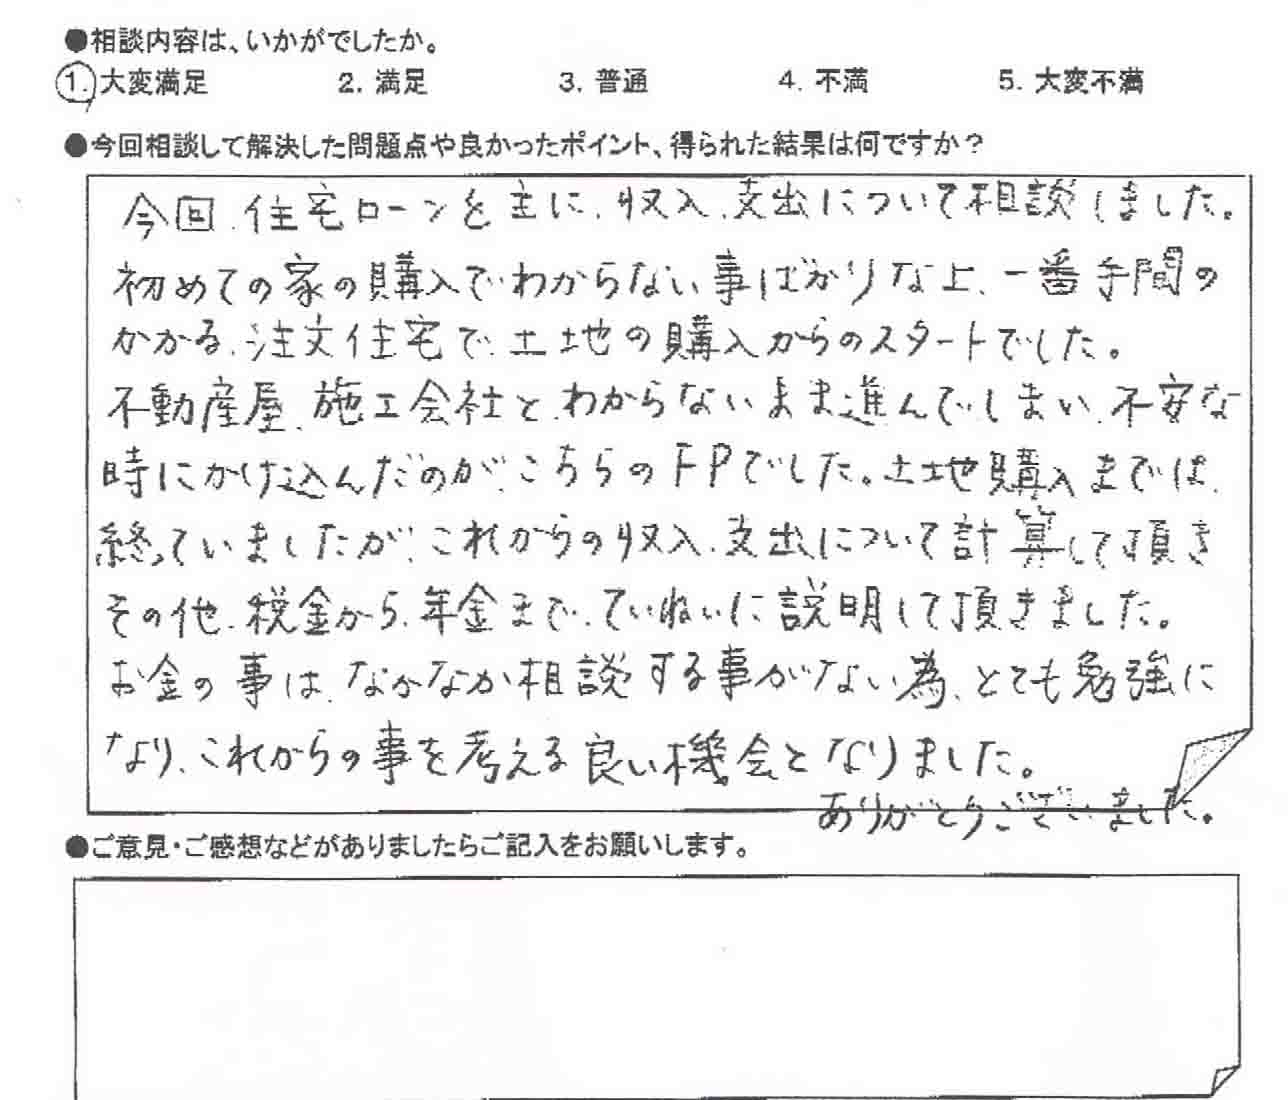 ●相談内容は、いかがでしたか。
1. 大変満足 2. 満足 3. 普通 4. 不満 5. 大変不満
●今回相談して解決した問題点や良かったポイント、得られた結果は何ですか？
今回、住宅ローンを主に、収入、支出について相談しました。
初めての家の購入でわからない事ばかりな上、一番手間の
かかる、注文住宅で、土地の購入からのスタートでした。
不動産屋、施工会社と、わからないまま進んでしまい、不安な
時にかけ込んだのが、こちらのFPでした。土地購入までは、
終っていましたが、これからの収入、支出について計算して頂き
その他、税金から、年金まで、ていねいに説明して頂きました。
お金の事は、なかなか相談する事がない為、とても勉強に
なり、これからの事を考える良い機会となりました。
ありがとうございました。
●ご意見・ご感想などがありましたらご記入をお願いします。